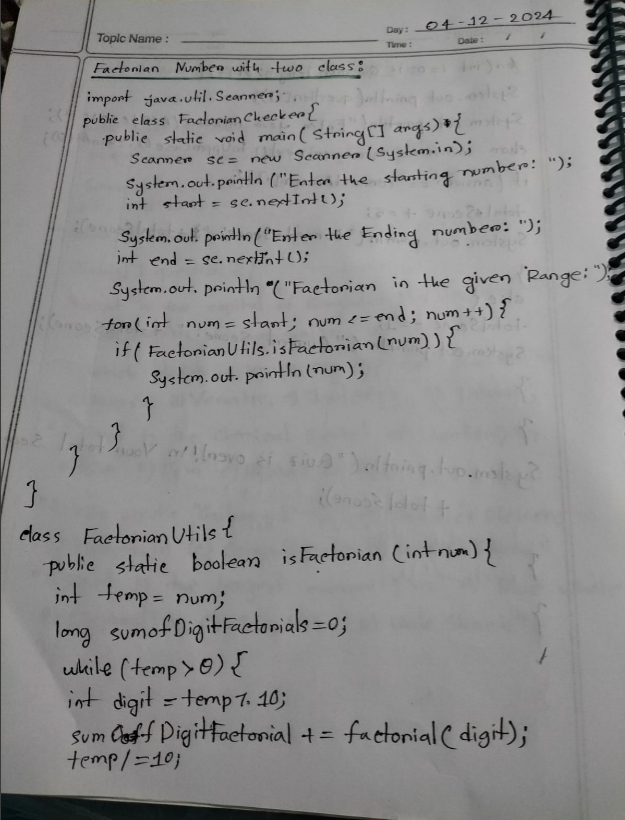 Topic Name :
Day : 04-12-2024
Time : Date : / /
Factorian Number with two class:
import java.util.Scanner;
public class FactorianChecker{
public static void main(String[] args) {
Scanner sc = new Scanner(System.in);
System.out.println("Enter the starting number: ");
int start = sc.nextInt();
System.out.println("Enter the Ending number: ");
int end = sc.nextInt();
System.out.println("Factorian in the given Range:");
for(int num = start; num <= end; num++) {
if(FactorianUtils.isFactorian(num)){
System.out.println(num);
}
}
}
}
class FactorianUtils{
public static boolean isFactorian(int num){
int temp = num;
long sumofDigitFactorials=0;
while(temp>0){
int digit = temp % 10;
sum Off DigitFactorial += factorial(digit);
temp/=10;